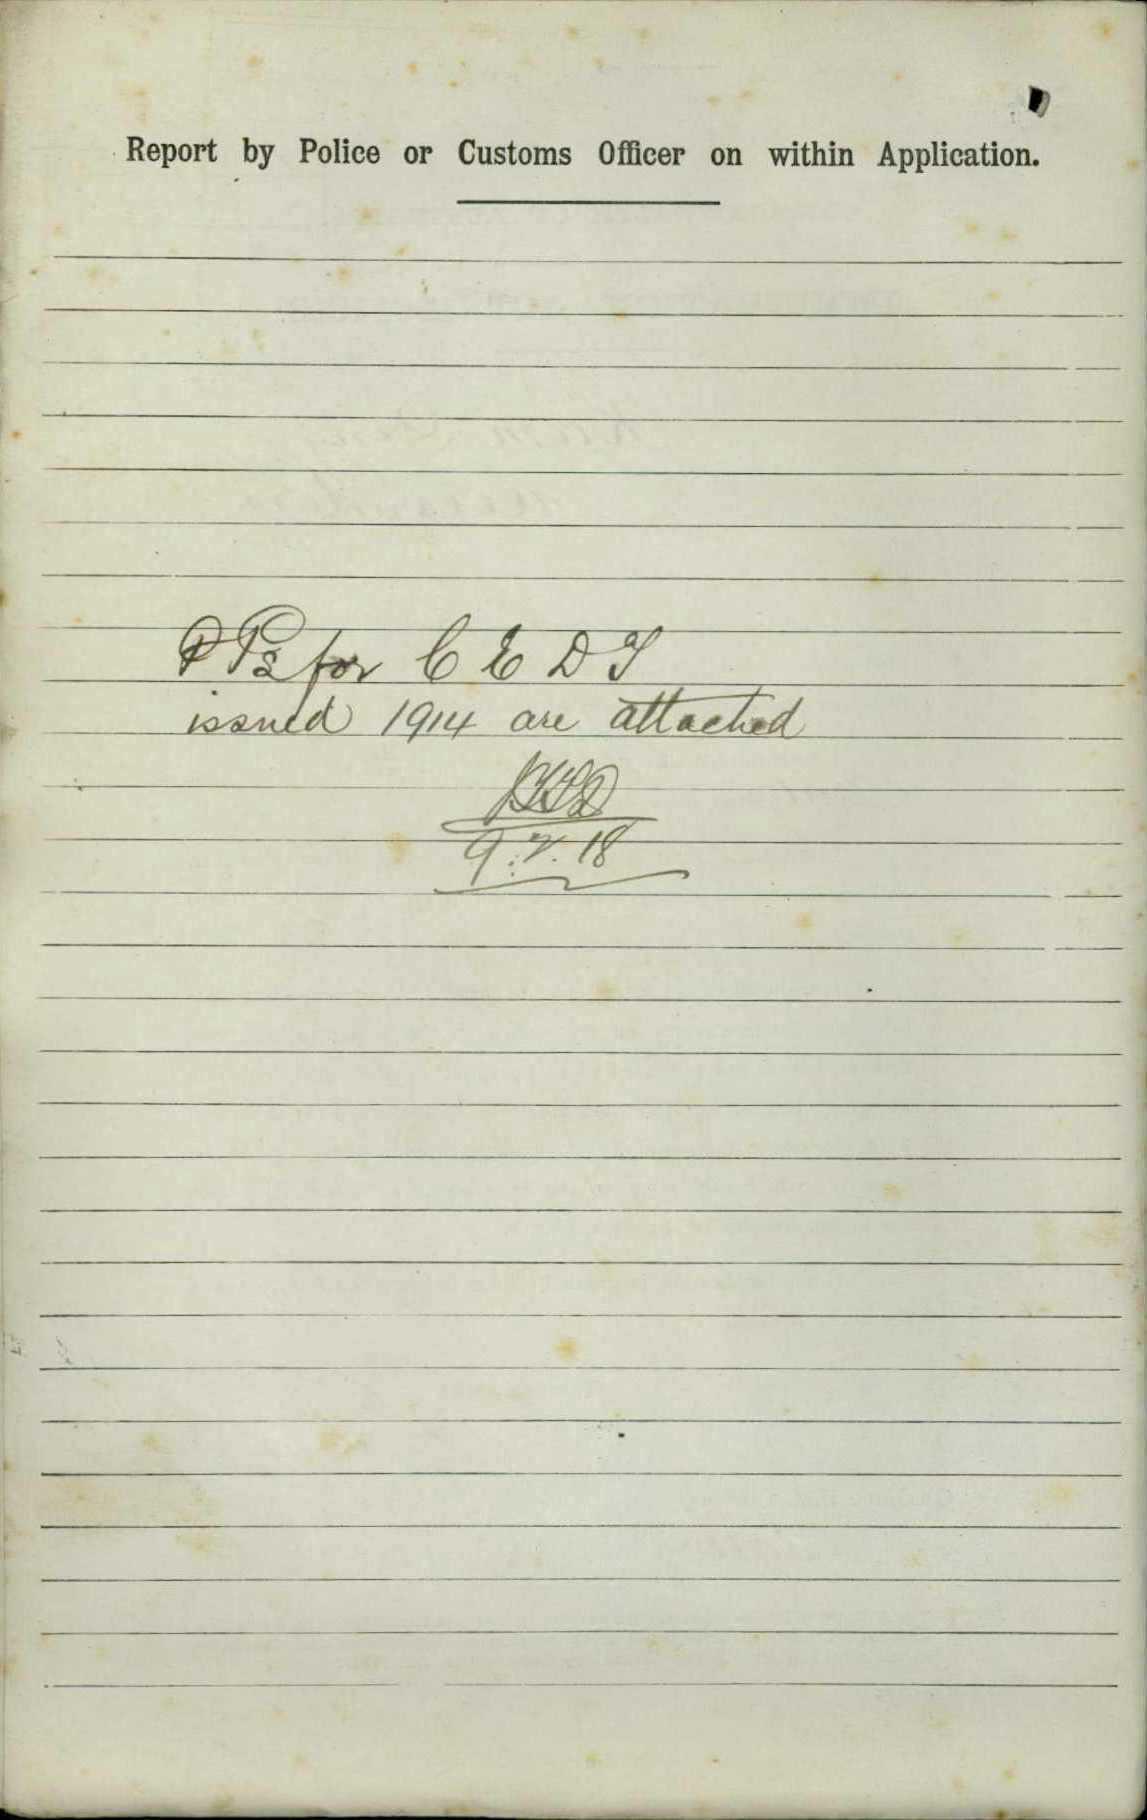 Report by Police or Customs Officer on within Application.
PPs for C E D T
issued 1914 are attached
9.7.18